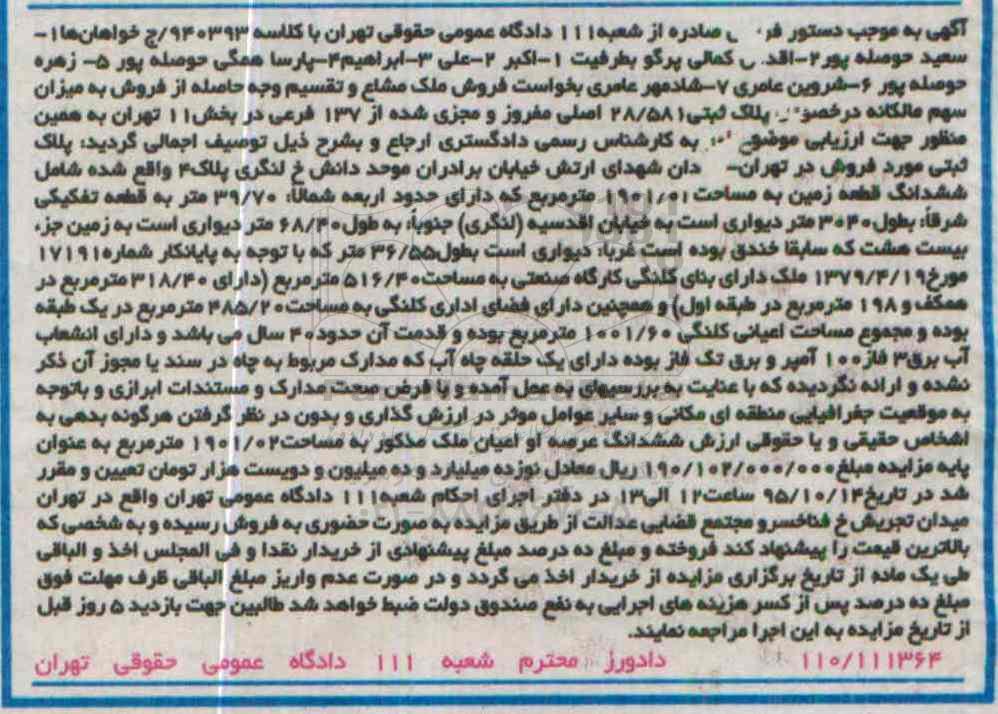 آگهی به موجب دستور صادره از شعبه۱۱۱ دادگاه عمومی حقوقی تهران با کلاسه ۹۴۰۳۹۳/ج خواهان‌ها۱-
سعید حوصله پور۲-اقد کمالی پرگو بطرفیت ۱-اکبر ۲-علی ۳-ابراهیم۴-پارسا همگی حوصله پور ۵- زهره
حوصله پور ۶-شروین عامری ۷-شادمهر عامری بخواست فروش ملک مشاع و تقسیم وجه حاصله از فروش به میزان
سهم مالکانه درخصو پلاک ثبتی۲۸/۵۸۱ اصلی مفروز و مجزی شده از ۱۳۷ فرعی در بخش۱۱ تهران به همین
منظور جهت ارزیابی موضوع به کارشناس رسمی دادگستری ارجاع و بشرح ذیل توصیف اجمالی گردید: پلاک
ثبتی مورد فروش در تهران- دان شهدای ارتش خیابان برادران موحد دانش خ لنگری پلاک۴ واقع شده شامل
ششدانگ قطعه زمین به مساحت۱۹۰۱/۰۱ مترمربع که دارای حدود اربعه شمالا: ۳۹/۷۰ متر به قطعه تفکیکی
شرقا: بطول۳۰۴۰ متر دیواری است به خیابان اقدسیه (لنگری) جنوبا: به طول۶۸/۴۰ متر دیواری است به زمین جزء
بیست هشت که سابقا خندق بوده است غربا: دیواری است بطول۳۶/۵۵ متر که با توجه به پایانکار شماره۱۷۱۹۱
مورخ۱۳۷۹/۴/۱۹ ملک دارای بنای کلنگی کارگاه صنعتی به مساحت۵۱۶/۴۰ مترمربع (دارای ۳۱۸/۴۰ مترمربع در
همکف و ۱۹۸ مترمربع در طبقه اول) و همچنین دارای فضای اداری کلنگی به مساحت۴۸۵/۲۰ مترمربع در یک طبقه
بوده و مجموع مساحت اعیانی کلنگی ۱۰۰۱/۶۰ مترمربع بوده و قدمت آن حدود۴۰ سال می باشد و دارای انشعاب
آب برق۳ فاز۱۰۰ آمپر و برق تک فاز بوده دارای یک حلقه چاه آب که مدارک مربوط به چاه در سند یا مجوز آن ذکر
نشده و ارائه نگردیده که با عنایت به بررسیهای به عمل آمده و با فرض صحت مدارک و مستندات ابرازی و باتوجه
به موقعیت جغرافیایی منطقه ای مکانی و سایر عوامل موثر در ارزش گذاری و بدون در نظر گرفتن هرگونه بدهی به
اشخاص حقیقی و یا حقوقی ارزش ششدانگ عرصه او اعیان ملک مذکور به مساحت۱۹۰۱/۰۲ مترمربع به عنوان
پایه مزایده مبلغ۱۹۰/۱۰۲/۰۰۰/۰۰۰ ریال معادل نوزده میلیارد و ده میلیون و دویست هزار تومان تعیین و مقرر
شد در تاریخ۹۵/۱۰/۱۴ ساعت۱۲ الی۱۳ در دفتر اجرای احکام شعبه۱۱۱ دادگاه عمومی تهران واقع در تهران
میدان تجریش خ فناخسرو مجتمع قضایی عدالت از طریق مزایده به صورت حضوری به فروش رسیده و به شخصی که
بالاترین قیمت را پیشنهاد کند فروخته و مبلغ ده درصد مبلغ پیشنهادی از خریدار نقدا و فی المجلس اخذ و الباقی
طی یک ماده از تاریخ برگزاری مزایده از خریدار اخذ می گردد و در صورت عدم واریز مبلغ الباقی ظرف مهلت فوق
مبلغ ده درصد پس از کسر هزینه های اجرایی به نفع صندوق دولت ضبط خواهد شد طالبین جهت بازدید ۵ روز قبل
از تاریخ مزایده به این اجرا مراجعه نمایند.
۱۱۰/۱۱۱۳۶۴ دادورز محترم شعبه ۱۱۱ دادگاه عمومی حقوقی تهران